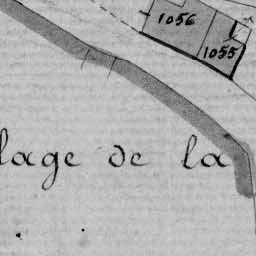 1056
1055
lage de la